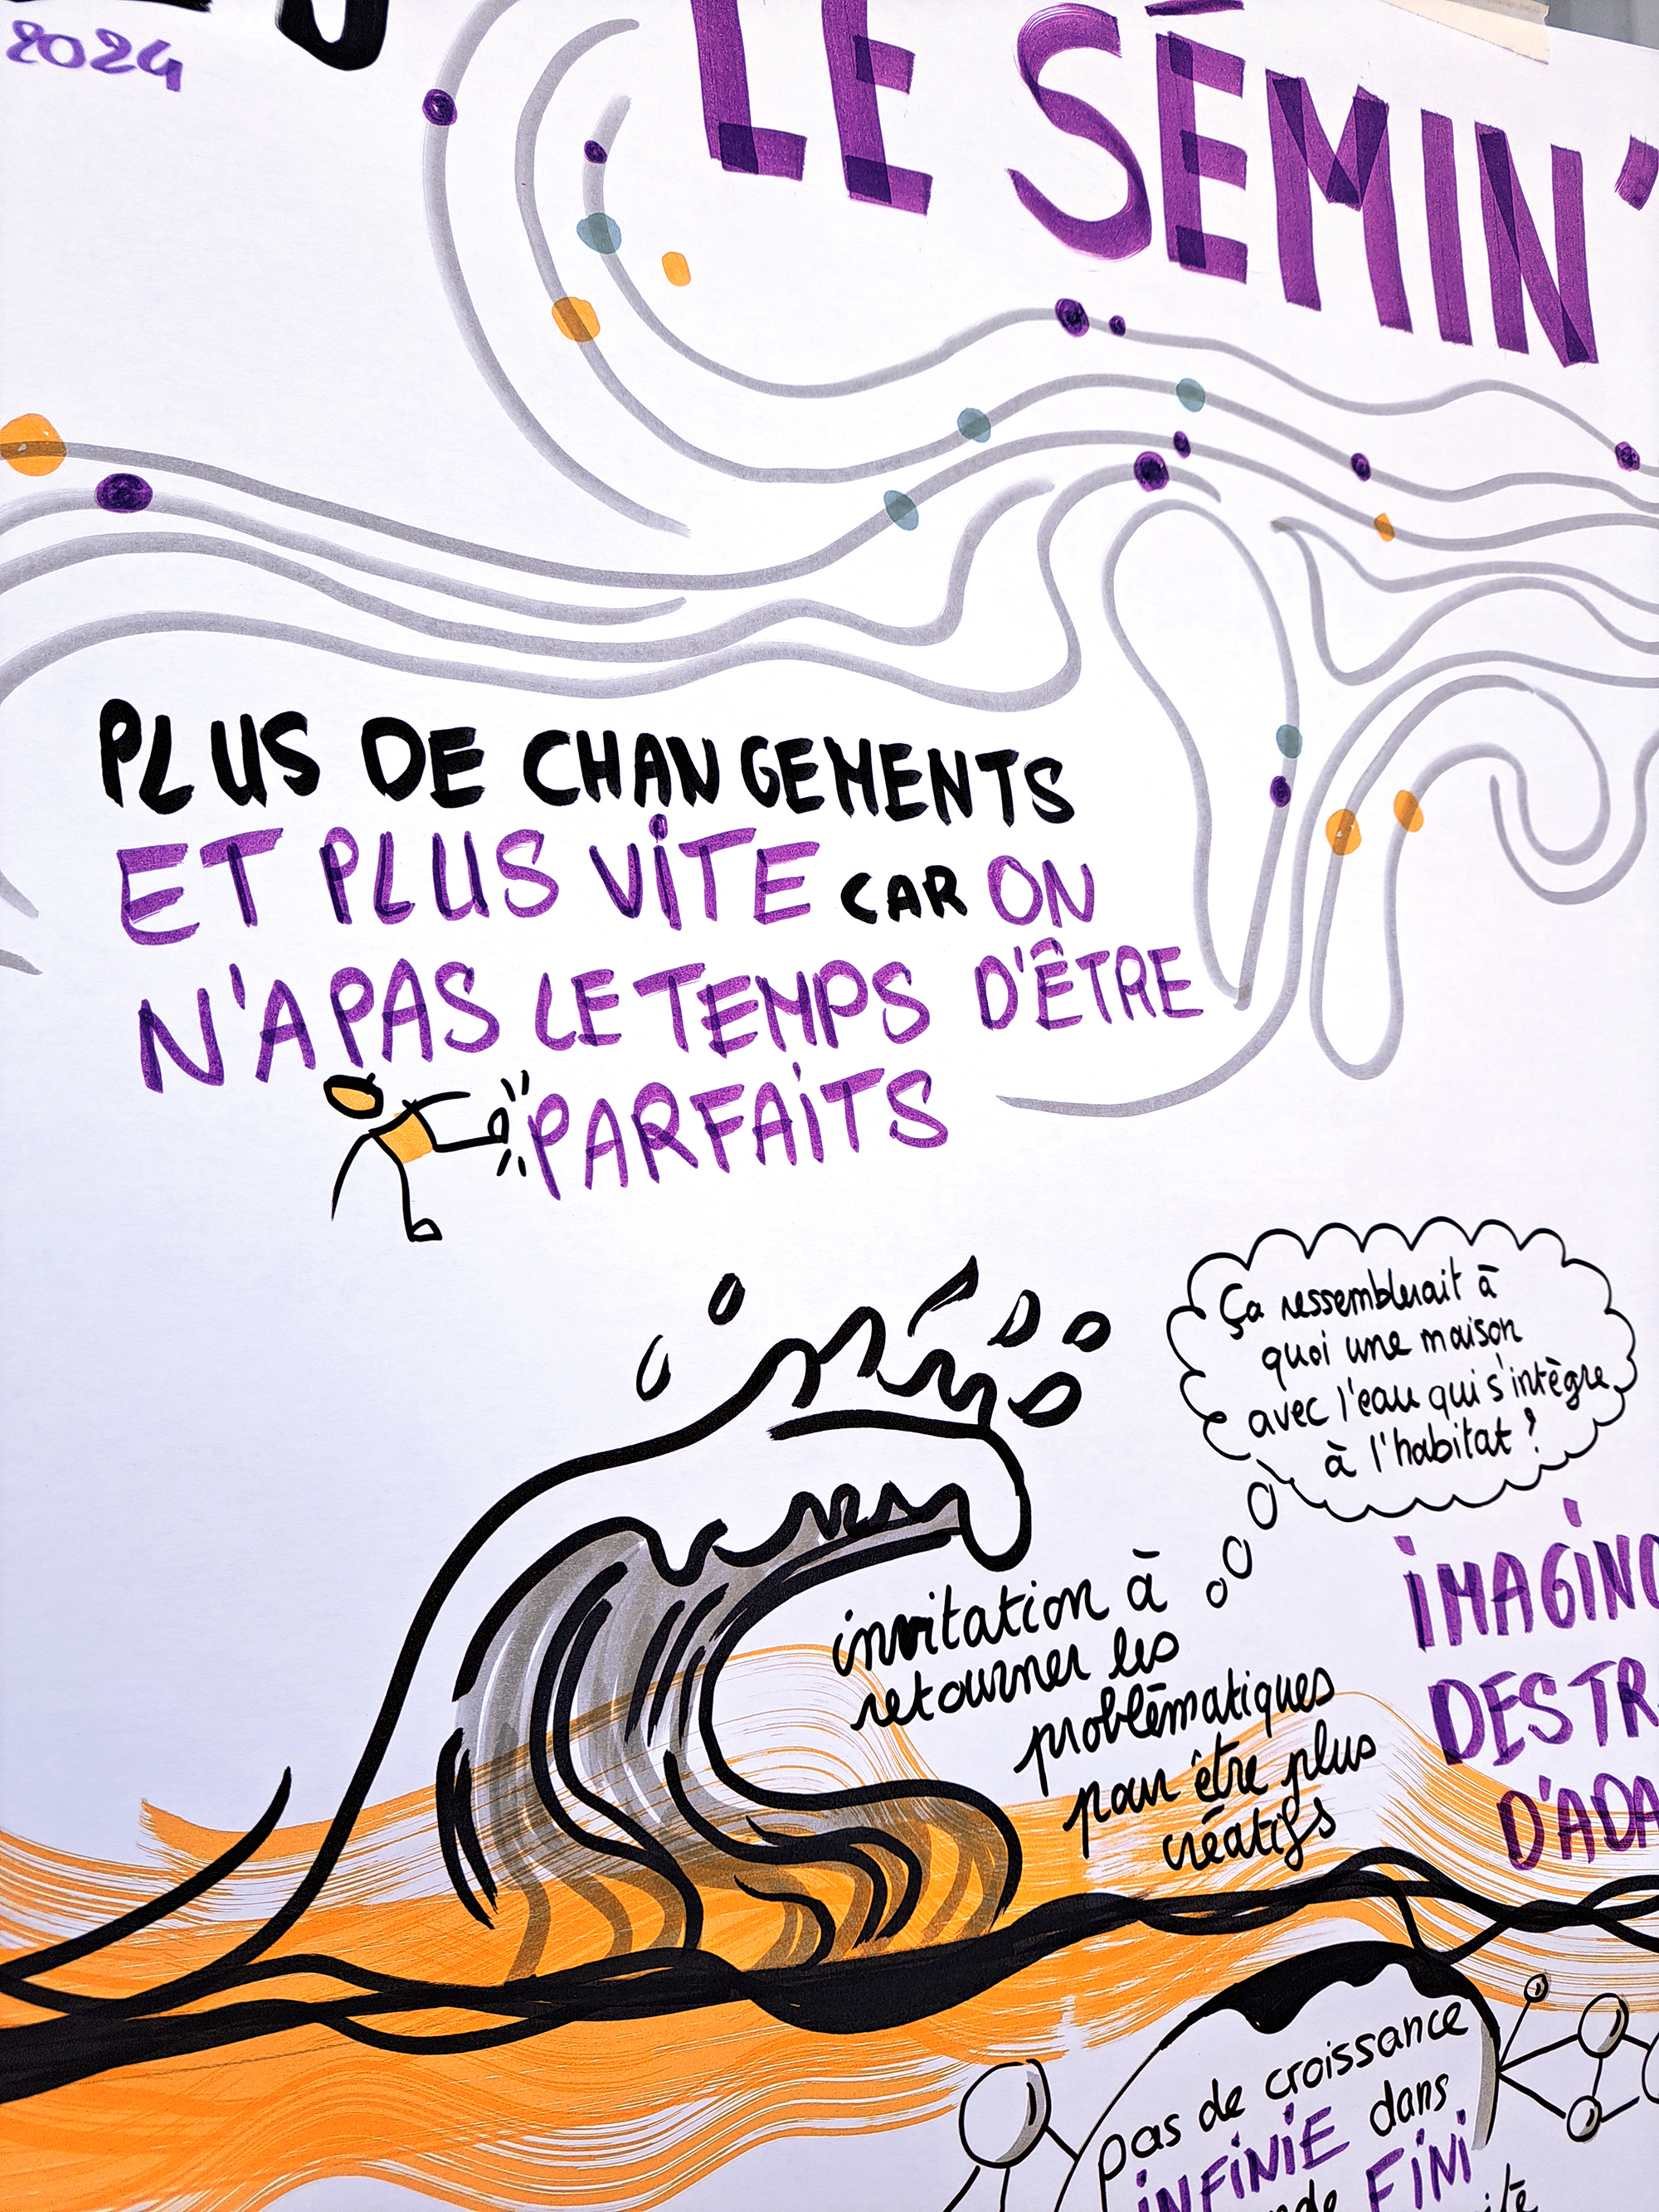 2024
LE SÉMIN'
PLUS DE CHANGEMENTS
ET PLUS VITE CAR ON
N'A PAS LE TEMPS D'ÊTRE
PARFAITS
Ça ressemblerait à
quoi une maison
avec l'eau qui s'intègre
à l'habitat ?
invitation à
retourner les
problématiques
pour être plus
créatifs
IMAGIN
DES TR
D'ADA
pas de croissance
INFINIE dans
FINI